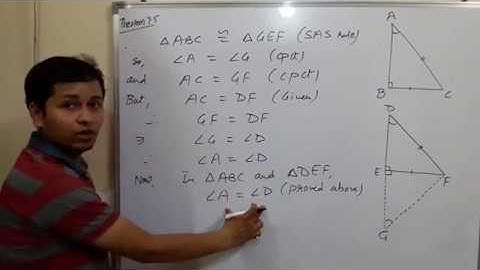 Theorem 7.5
△ABC ≅ △GEF (SAS rule)
So, ∠A = ∠G (cpct)
and AC = GF (cpct)
But, AC = DF (Given)
∴ GF = DF
⇒ ∠G = ∠D
∴ ∠A = ∠D
Now, In △ABC and △DEF,
∠A = ∠D (proved above)
A
B
C
D
E
F
G